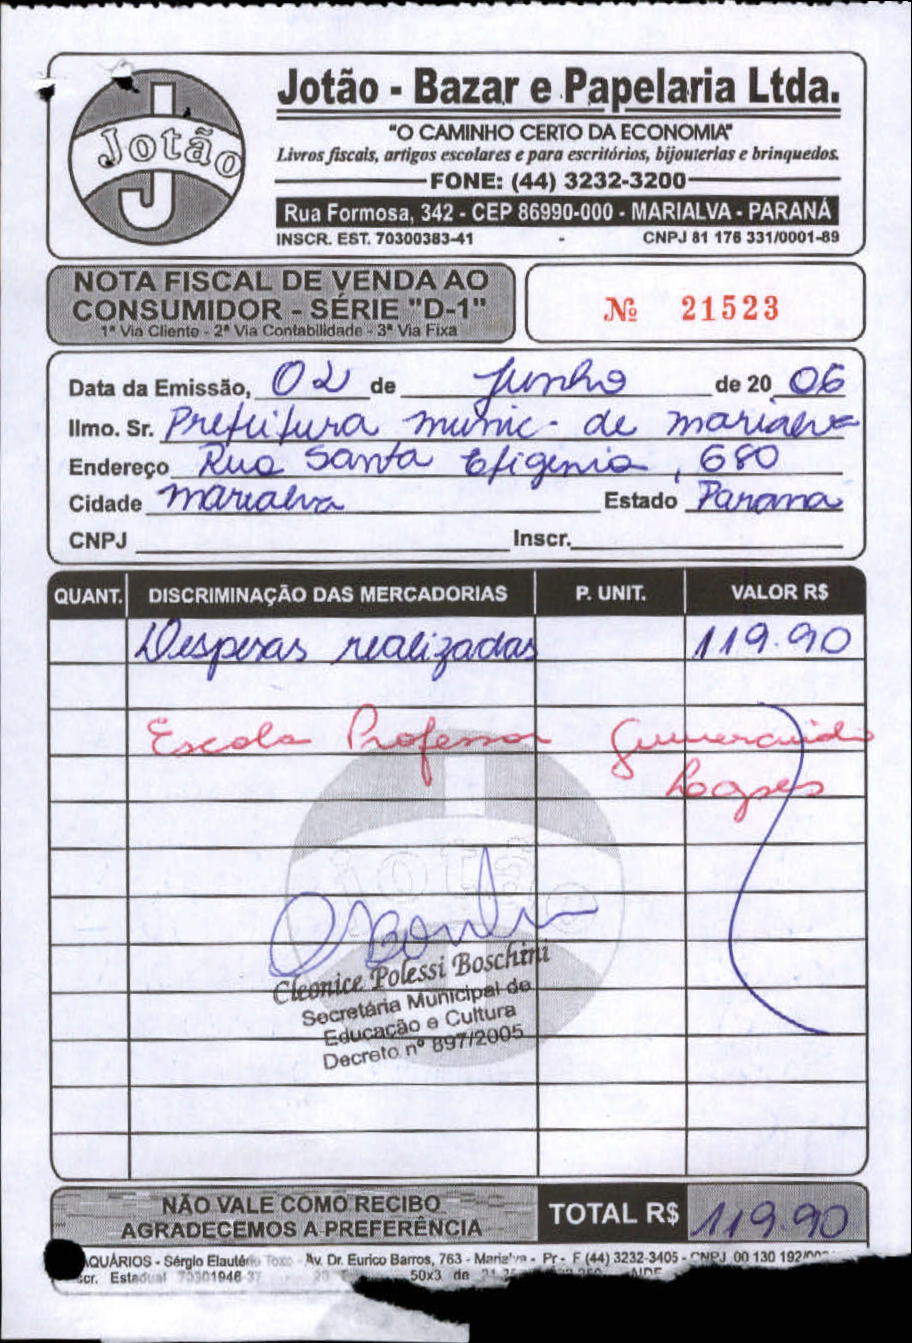 Jotão
Jotão - Bazar e Papelaria Ltda.
"O CAMINHO CERTO DA ECONOMIA"
Livros fiscais, artigos escolares e para escritórios, bijouterias e brinquedos.
FONE: (44) 3232-3200
Rua Formosa, 342 - CEP 86990-000 - MARIALVA - PARANÁ
INSCR. EST. 70300383-41 - CNPJ 81 176 331/0001-89
NOTA FISCAL DE VENDA AO
CONSUMIDOR - SÉRIE "D-1"
1ª Via Cliente - 2ª Via Contabilidade - 3ª Via Fixa
Nº 21523
Data da Emissão, 02 de Junho de 20 06
Ilmo. Sr. Prefeitura munic. de marialva
Endereço Rua Santa Efigênia, 680
Cidade marialva Estado Parana
CNPJ Inscr.
QUANT. DISCRIMINAÇÃO DAS MERCADORIAS P. UNIT. VALOR R$
Despesas realizadas 119.90
Escola Professor
Cleonice Polessi Boschini
Secretária Municipal de
Educação e Cultura
Decreto nº 897/2005
NÃO VALE COMO RECIBO
AGRADECEMOS A PREFERÊNCIA
TOTAL R$ 119.90
AQUÁRIOS - Sérgio - Av. Dr. Eurico Barros, 763 - Marialva - Pr - F (44) 3232-3405 - CNPJ 00 130 192/
scr. Estadual 50x3 de